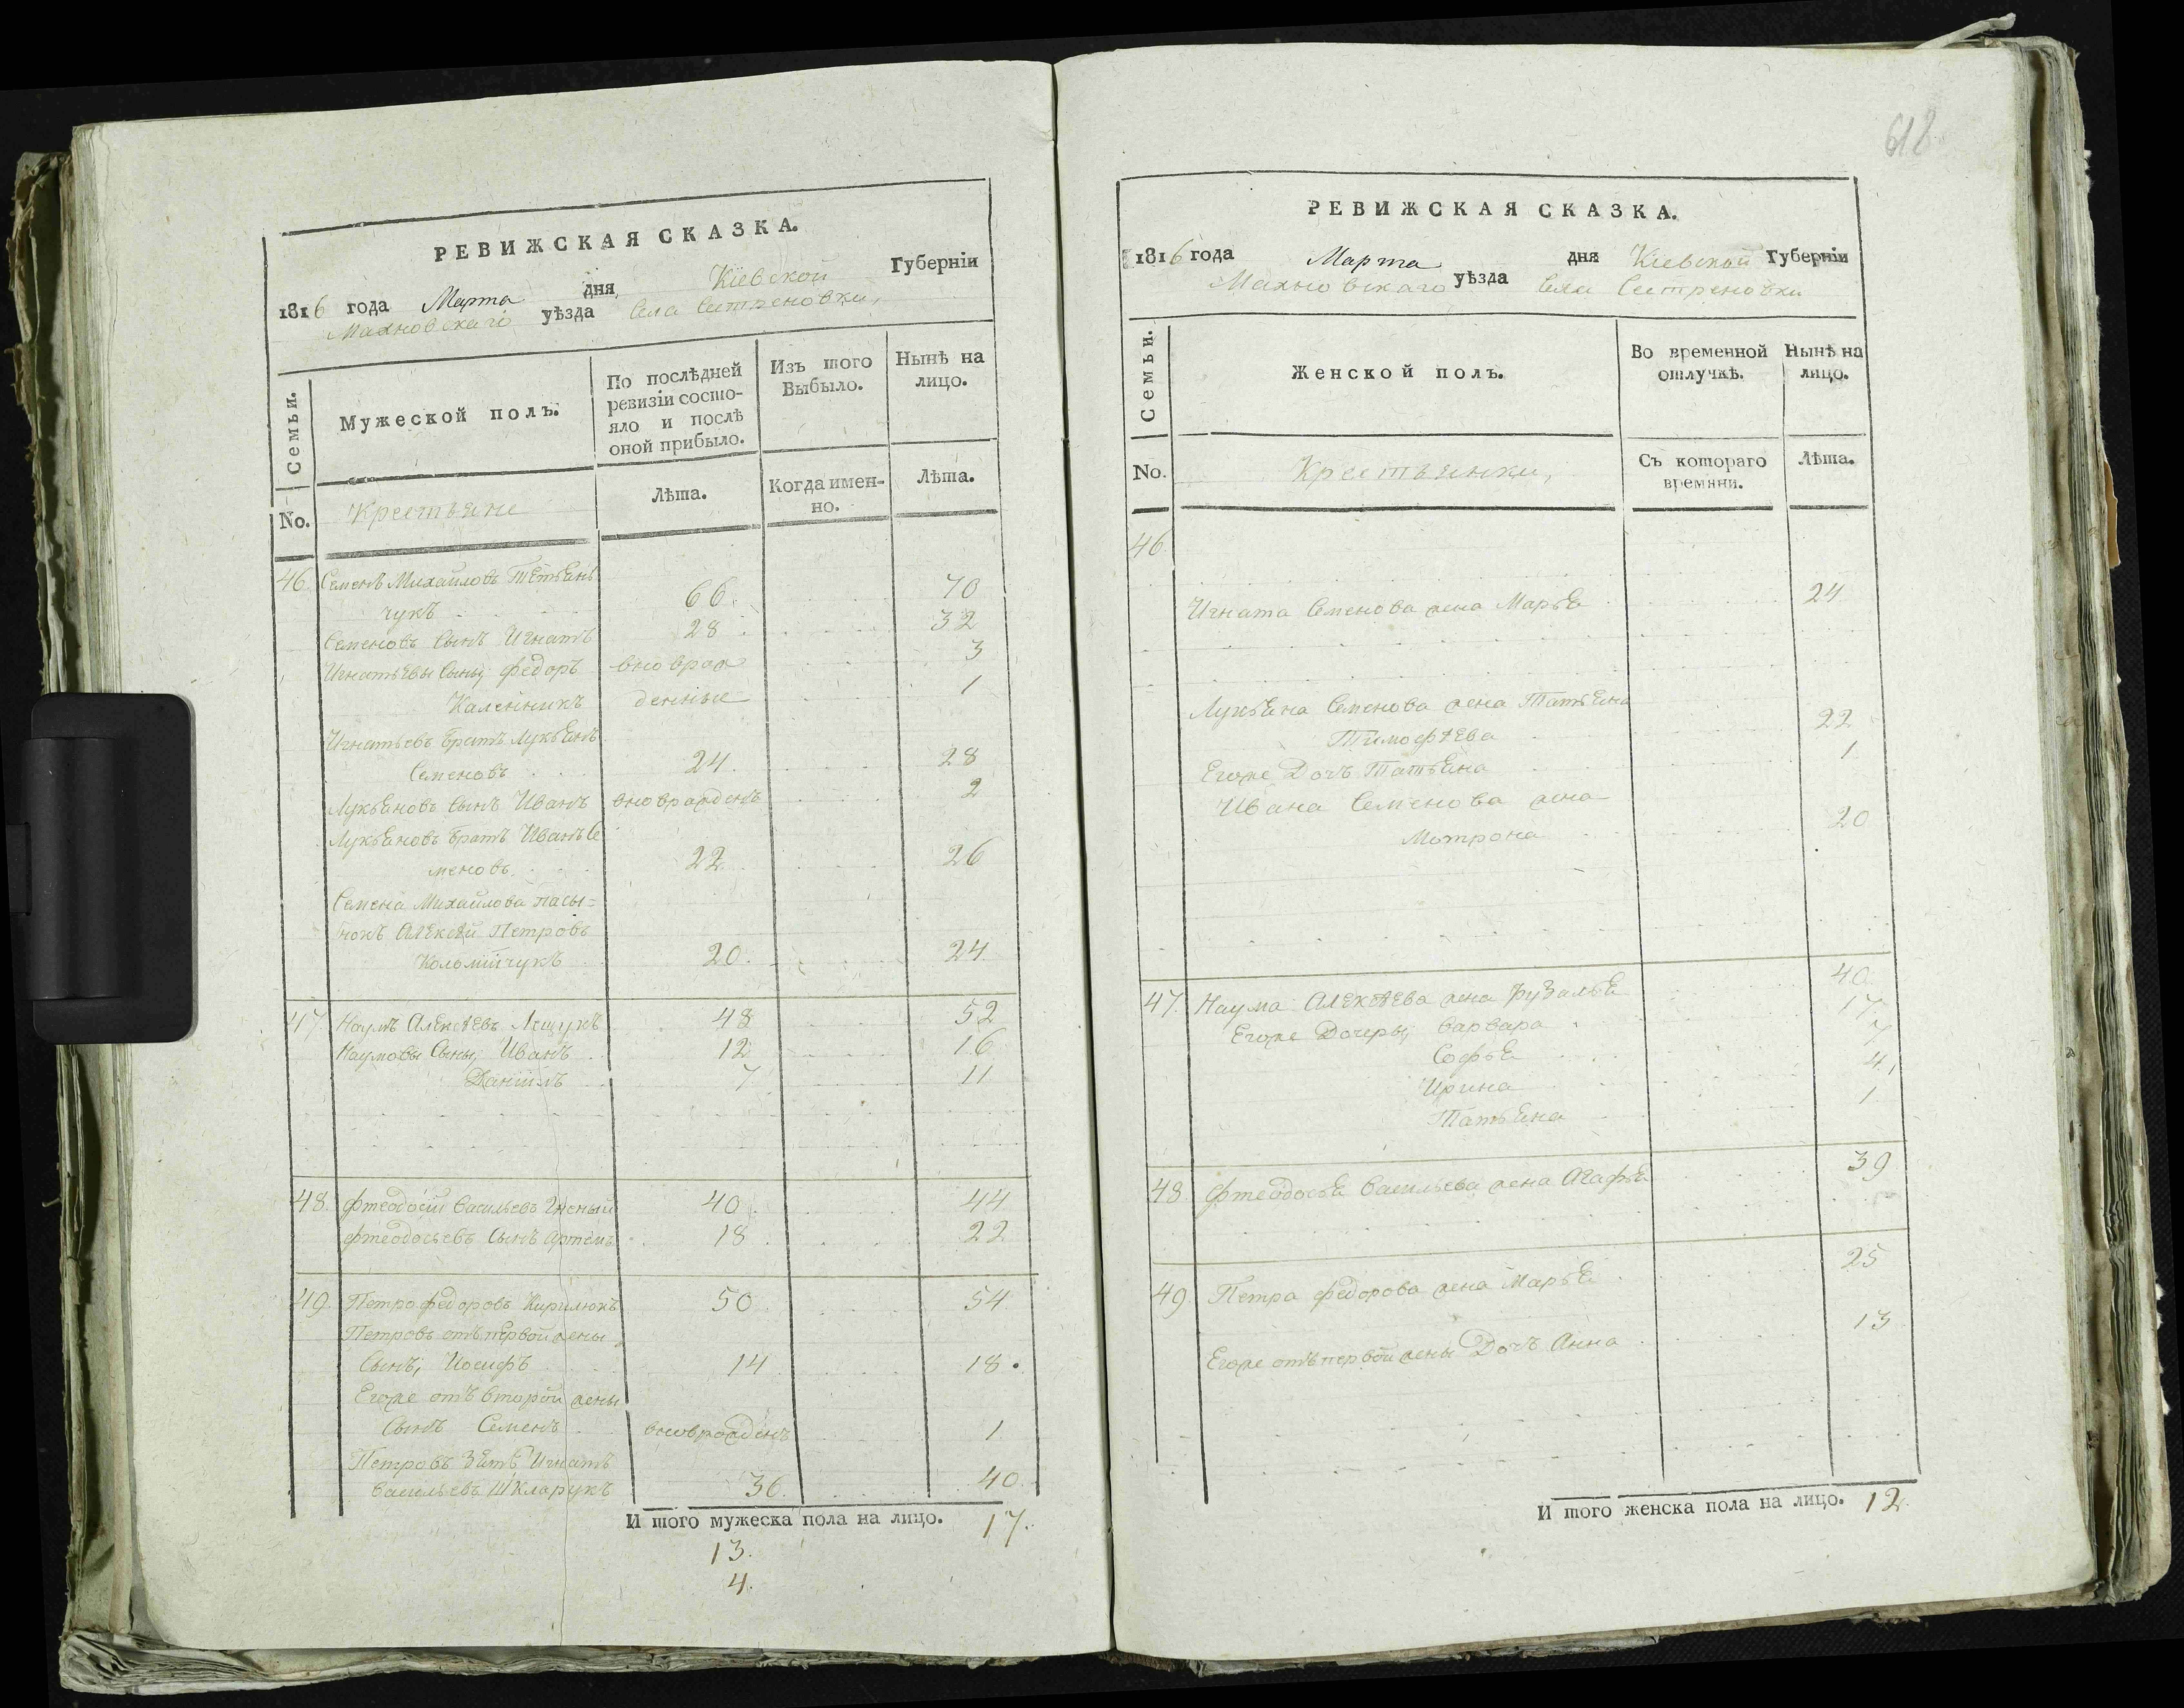 РЕВИЖСКАЯ СКАЗКА.
1816 года Марта дня Кіевской Губерніи
Махновскаго уѣзда Села Сестреновки,
Семьи.
No.
Мужеской полъ.
Крестьяне
По послѣдней
ревизіи состо-
яло и послѣ
оной прибыло.
Лѣта.
Изъ того
Выбыло.
Когда имен-
но.
Нынѣ на
лицо.
Лѣта.
46. Семенъ Михайловъ Тетьян
чукъ 66. 70
Семеновъ Сынъ Игнатъ 28 32
Игнатьевы Сыны, Федоръ вновраж 3
Каленникъ денные 1
Игнатьевъ братъ Лукьянъ
Семеновъ 24. 28
Лукьяновъ Сынъ Иванъ вноврожденъ 2
Лукьяновъ братъ Иванъ Се
меновъ 22. 26
Семена Михайлова пасы=
нокъ Алексѣй Петровъ
Коломійчукъ 20. 24
47 Наумъ Алексѣевъ Лещукъ 48 52
Наумовы Сыны, Иванъ 12 16
Даніилъ 7 11
48. Фтеодосій Васильевъ 40 44
Фтеодосьевъ Сынъ Артемъ 18 22
49. Петро Федоровъ Кирилюкъ 50 54
Петровъ отъ первой жены
Сынъ, Иосифъ 14 18.
Егоже отъ второй жены
Сынъ Семенъ вноврожденъ 1
Петровъ Зять Игнатъ
Васильевъ Шкларукъ 36. 40.
И того мужеска пола на лицо. 17.
13.
4.
618
РЕВИЖСКАЯ СКАЗКА.
1816 года Марта дня Кіевской Губерніи
Махновскаго уѣзда Села Сестреновки
Семьи.
No.
Женской полъ.
Крестьянки,
Во временной
отлучкѣ.
Съ котораго
времяни.
Нынѣ на
лицо.
Лѣта.
46
Игната Семенова жена Марья 24
Лукьяна Семенова жена Татьяна
Тимофѣева 22
Егоже Дочъ Татьяна 1
Ивана Семенова жена
Мотрона 20
47. Наума Алексѣева жена Фрузалья 40
Егоже Дочеры, Варвара 17
Софья 7
Ирина 4,
Татьяна 1
48. Фтеодосья Васильева жена Агафья 39
49. Петра Федорова жена Марья 25
Егоже отъ первой жены Дочъ Анна 13
И того женска пола на лицо. 12.